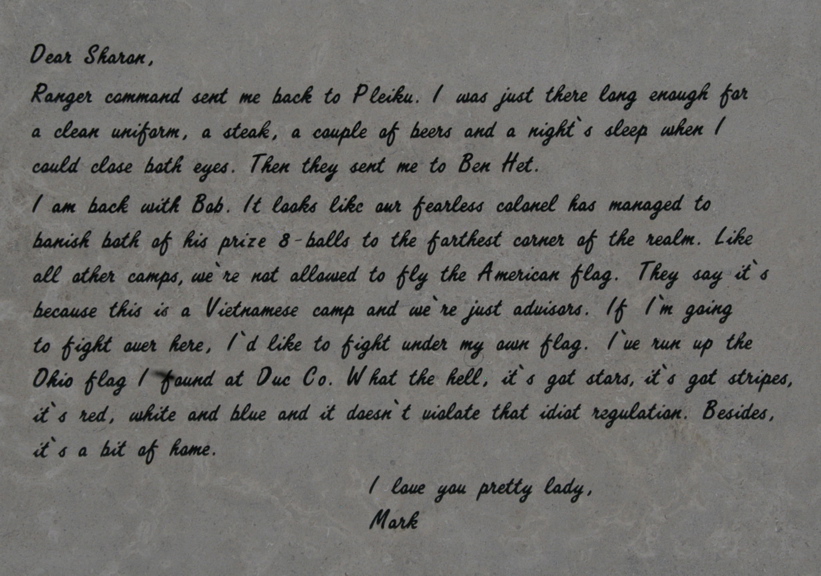 Dear Sharon,
Ranger command sent me back to Pleiku. I was just there long enough for
a clean uniform, a steak, a couple of beers and a night`s sleep when I
could close both eyes. Then they sent me to Ben Het.
I am back with Bob. It looks like our fearless colonel has managed to
banish both of his prize 8-balls to the farthest corner of the realm. Like
all other camps, we`re not allowed to fly the American flag. They say it`s
because this is a Vietnamese camp and we`re just advisors. If I`m going
to fight over here, I`d like to fight under my own flag. I`ve run up the
Ohio flag I found at Duc Co. What the hell, it`s got stars, it`s got stripes,
it`s red, white and blue and it doesn`t violate that idiot regulation. Besides,
it`s a bit of home.
I love you pretty lady,
Mark